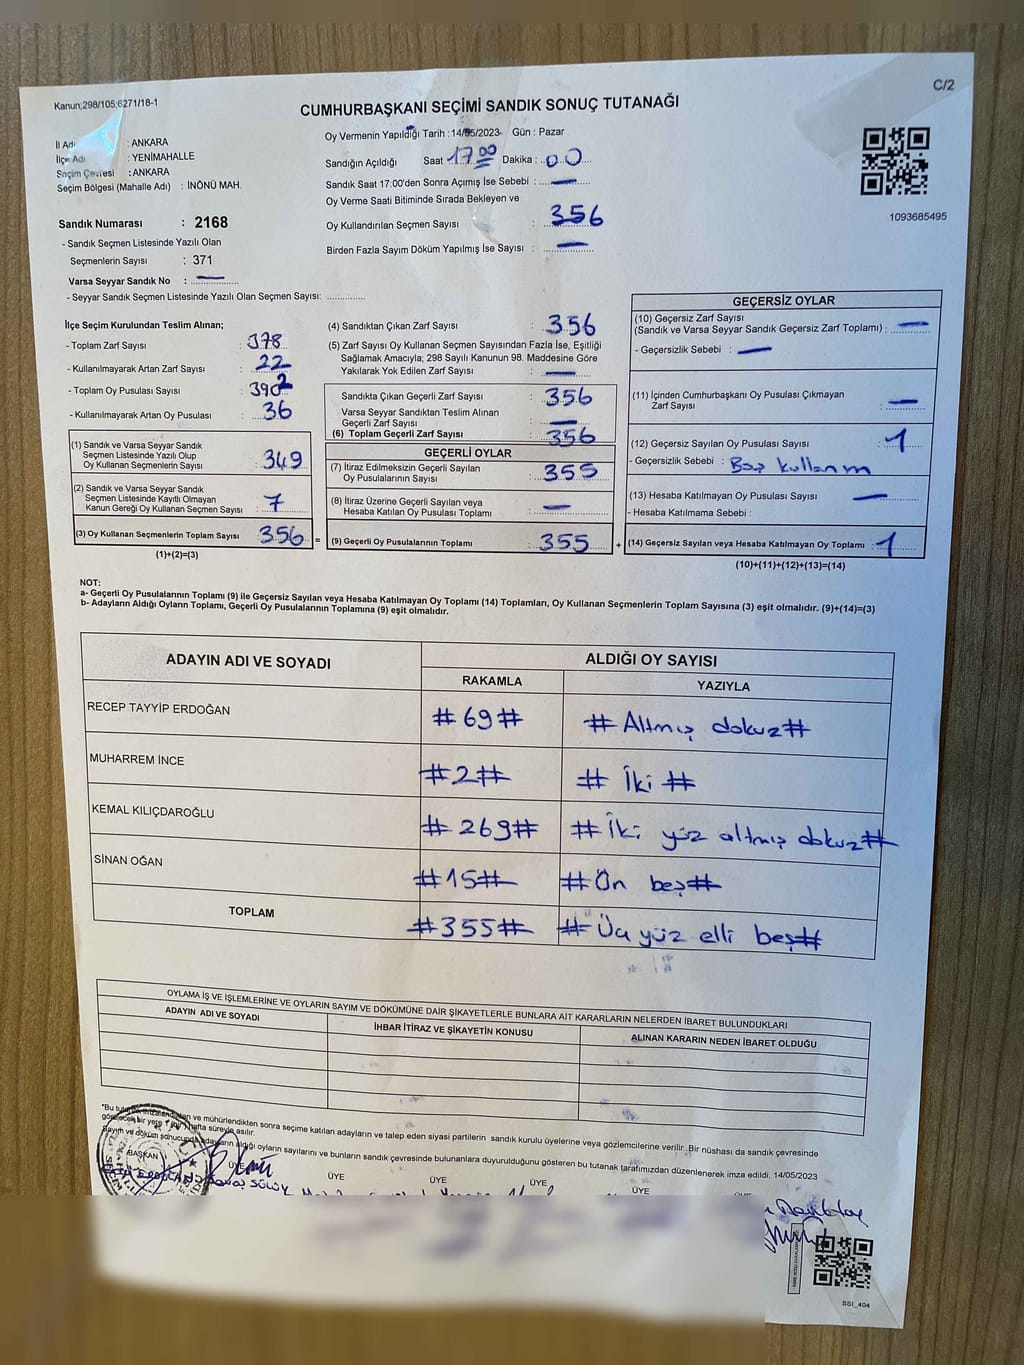 Kanun;298/105;6271/18-1
C/2
CUMHURBAŞKANI SEÇİMİ SANDIK SONUÇ TUTANAĞI
İl Adı : ANKARA
İlçe Adı : YENİMAHALLE
Seçim Çevresi : ANKARA
Seçim Bölgesi (Mahalle Adı) : İNÖNÜ MAH.
Sandık Numarası : 2168
- Sandık Seçmen Listesinde Yazılı Olan
Seçmenlerin Sayısı : 371
Varsa Seyyar Sandık No : —
- Seyyar Sandık Seçmen Listesinde Yazılı Olan Seçmen Sayısı: ..............
Oy Vermenin Yapıldığı Tarih : 14/05/2023 Gün : Pazar
Sandığın Açıldığı Saat 17:00 Dakika : 00
Sandık Saat 17:00'den Sonra Açımış İse Sebebi : —
Oy Verme Saati Bitiminde Sırada Bekleyen ve
Oy Kullandırılan Seçmen Sayısı : 356
Birden Fazla Sayım Döküm Yapılmış İse Sayısı : —
1093685495
İlçe Seçim Kurulundan Teslim Alınan;
- Toplam Zarf Sayısı : 378
- Kullanılmayarak Artan Zarf Sayısı : 22
- Toplam Oy Pusulası Sayısı : 392
- Kullanılmayarak Artan Oy Pusulası : 36
(1) Sandık ve Varsa Seyyar Sandık
Seçmen Listesinde Yazılı Olup
Oy Kullanan Seçmenlerin Sayısı : 349
(2) Sandık ve Varsa Seyyar Sandık
Seçmen Listesinde Kayıtlı Olmayan
Kanun Gereği Oy Kullanan Seçmen Sayısı : 7
(3) Oy Kullanan Seçmenlerin Toplam Sayısı : 356 =
(1)+(2)=(3)
(4) Sandıktan Çıkan Zarf Sayısı : 356
(5) Zarf Sayısı Oy Kullanan Seçmen Sayısından Fazla İse, Eşitliği
Sağlamak Amacıyla; 298 Sayılı Kanunun 98. Maddesine Göre
Yakılarak Yok Edilen Zarf Sayısı : —
Sandıkta Çıkan Geçerli Zarf Sayısı : 356
Varsa Seyyar Sandıktan Teslim Alınan
Geçerli Zarf Sayısı : —
(6) Toplam Geçerli Zarf Sayısı : 356
GEÇERLİ OYLAR
(7) İtiraz Edilmeksizin Geçerli Sayılan
Oy Pusulalarının Sayısı : 355
(8) İtiraz Üzerine Geçerli Sayılan veya
Hesaba Katılan Oy Pusulası Toplamı : —
(9) Geçerli Oy Pusulalarının Toplamı : 355 +
GEÇERSİZ OYLAR
(10) Geçersiz Zarf Sayısı
(Sandık ve Varsa Seyyar Sandık Geçersiz Zarf Toplamı) : —
- Geçersizlik Sebebi : —
(11) İçinden Cumhurbaşkanı Oy Pusulası Çıkmayan
Zarf Sayısı : —
(12) Geçersiz Sayılan Oy Pusulası Sayısı : 1
- Geçersizlik Sebebi : Boş kullanım
(13) Hesaba Katılmayan Oy Pusulası Sayısı : —
- Hesaba Katılmama Sebebi :
(14) Geçersiz Sayılan veya Hesaba Katılmayan Oy Toplamı : 1
(10)+(11)+(12)+(13)=(14)
NOT:
a- Geçerli Oy Pusulalarının Toplamı (9) ile Geçersiz Sayılan veya Hesaba Katılmayan Oy Toplamı (14) Toplamları, Oy Kullanan Seçmenlerin Toplam Sayısına (3) eşit olmalıdır. (9)+(14)=(3)
b- Adayların Aldığı Oyların Toplamı, Geçerli Oy Pusulalarının Toplamına (9) eşit olmalıdır.
ADAYIN ADI VE SOYADI ALDIĞI OY SAYISI
RAKAMLA YAZIYLA
RECEP TAYYİP ERDOĞAN #69# #Altmış dokuz#
MUHARREM İNCE #2# #İki#
KEMAL KILIÇDAROĞLU #269# #İki yüz altmış dokuz#
SİNAN OĞAN #15# #Ön beş#
TOPLAM #355# #Üç yüz elli beş#
OYLAMA İŞ VE İŞLEMLERİNE VE OYLARIN SAYIM VE DÖKÜMÜNE DAİR ŞİKAYETLERLE BUNLARA AİT KARARLARIN NELERDEN İBARET BULUNDUKLARI
ADAYIN ADI VE SOYADI İHBAR İTİRAZ VE ŞİKAYETİN KONUSU ALINAN KARARIN NEDEN İBARET OLDUĞU
"Bu ve mühürlendikten sonra seçime katılan adayların ve talep eden siyasi partilerin sandık kurulu üyelerine veya gözlemcilerine verilir. Bir nüshası da sandık çevresinde
bir yere hafta süreyle asılır.
Sayım ve döküm sonucunda adayların aldığı oyların sayılarını ve bunların sandık çevresinde bulunanlara duyurulduğunu gösteren bu tutanak tarafımızdan düzenlenerek imza edildi. 14/05/2023
BAŞKAN ÜYE ÜYE ÜYE ÜYE ÜYE
SSI_404